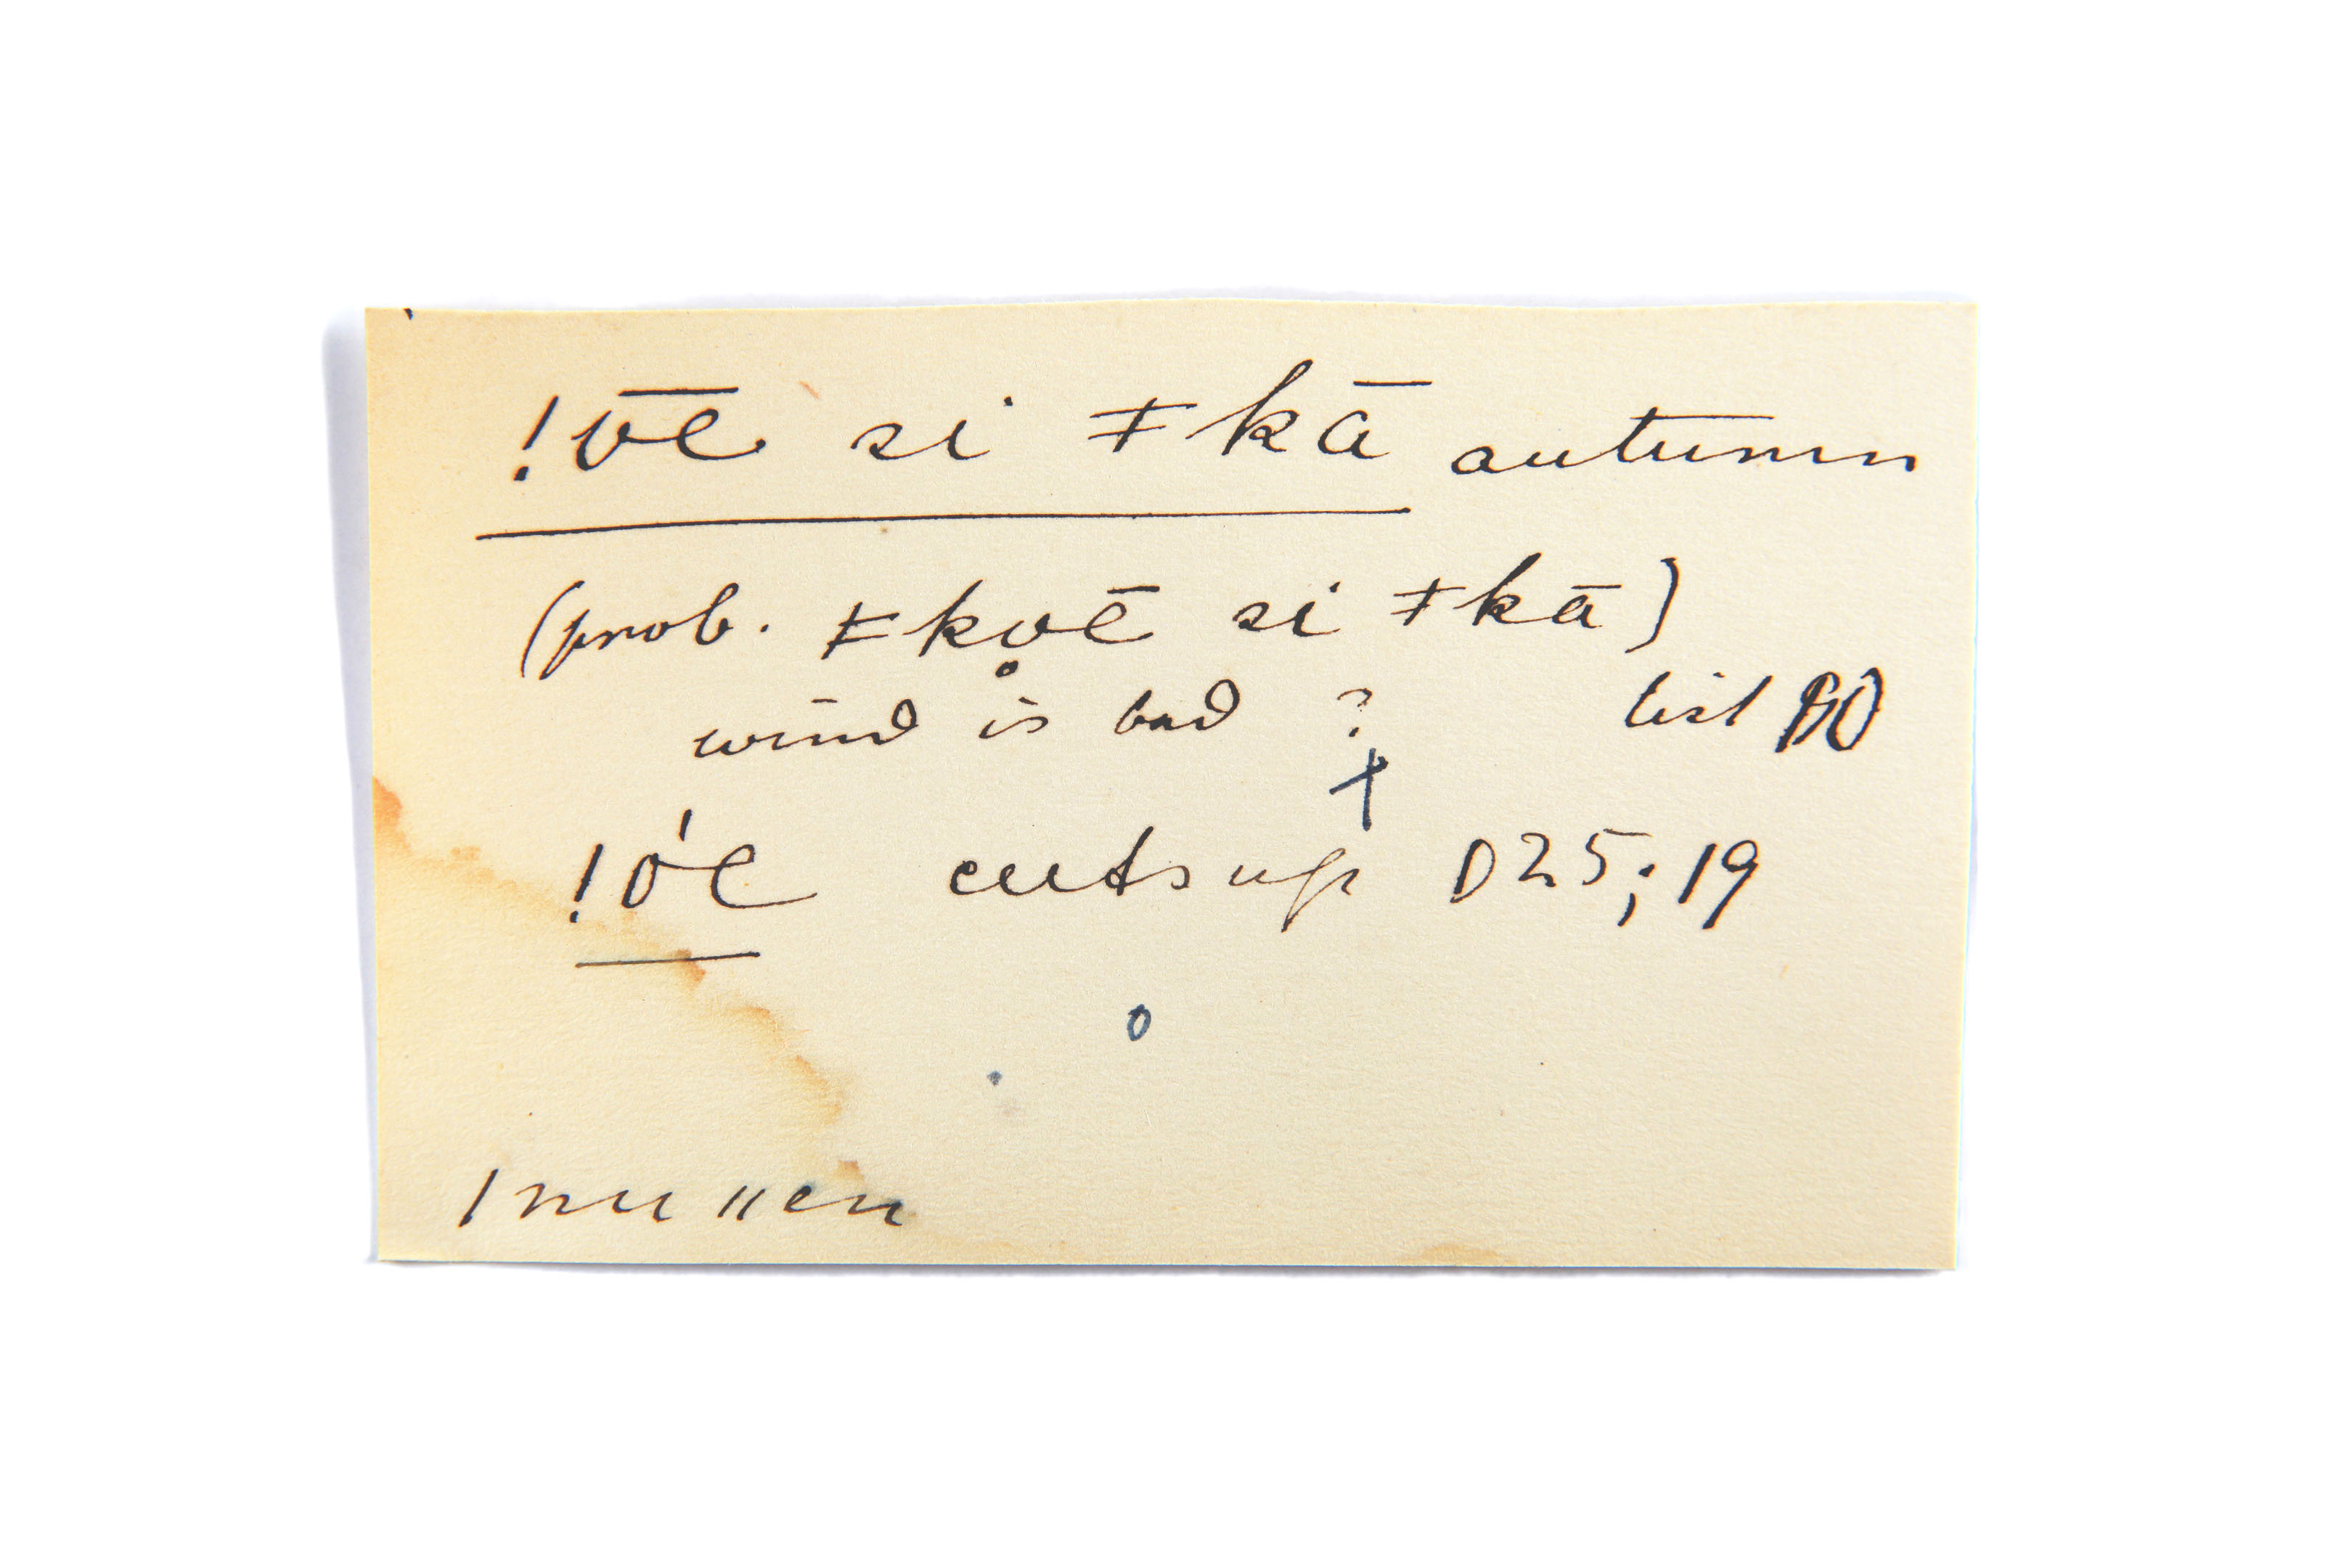 !o͞e si ǂkā autumn
(prob. ǂko̥ē si ǂkā)
wind is bad ? list
!óe cuts up D25; 19
ǀnu ǁen